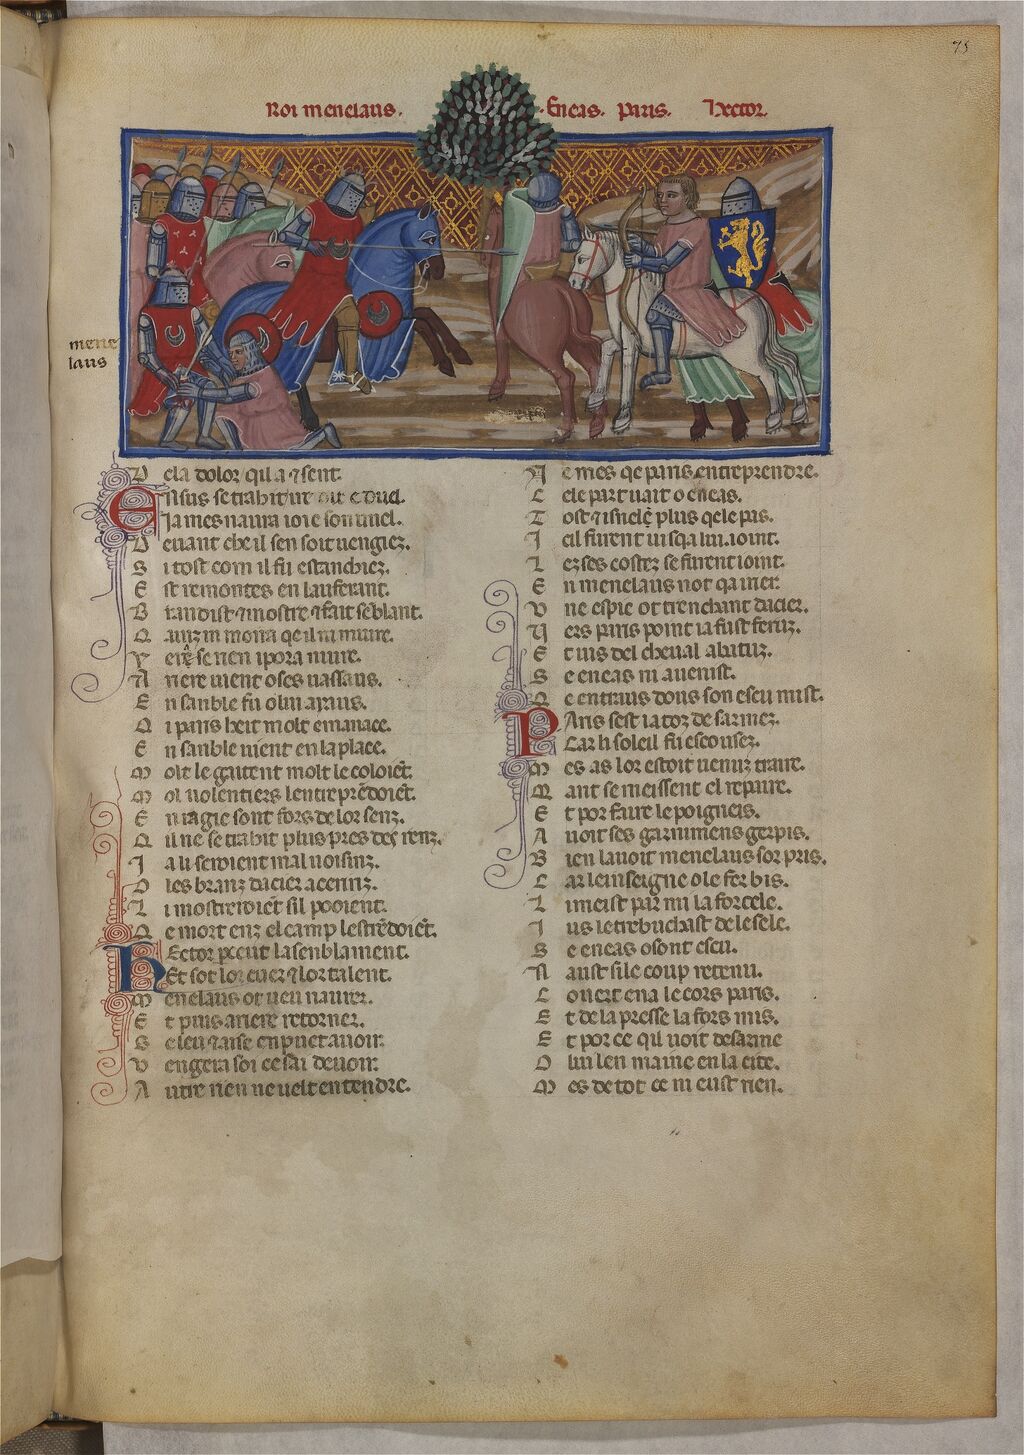 75
Roi menelaus. Eneas. paris. Hector.
mene
laus
De la dolor qil a & sent.
Ensus se trahit
Ja mes naura ioie son uuel.
Deuant che il sen soit uengiez.
Si tost com il fu estanchiez.
Est remontes en lauferant.
Brandist & mostre & fait seblant.
Ariere uient o ses uassaus.
En sanble fu o lui
Qi paris heit molt e manace.
En sanble uient en la place.
Molt le gaitent molt le coloiet.
Mol uolentiers lentreprendroiet.
En
Qil ne se trahit plus pres des renz.
Ja li seroient mal uoisinz.
O les branz dacier acerinz.
Li mostreroiet sil pooient.
Qe mort enz el camp lestedroiet.
Hector pceut lasenblament.
Et sot lor cuer & lor talent.
Menelaus ot ueu naurer.
Et puis ariere retorner.
Vengera soi ce sai de uoir.
Autre rien ne uelt entendre.
Ne mes qe paris entreprendre.
Cele part uait o eneas.
Tost & isnele plus qe le pas.
Cil furent iusqa lui ioint.
Lez ses costez se furent ioint.
En menelaus not qairier.
Vne espie ot trenchant dacier.
Vers paris point ia fust feruz.
Et ius del cheual abatuz.
Se eneas ni auenist.
Qe entraus dous son escu mist.
Paris sest ia toz desarmez.
Car li soleil fu esconsez.
Mes as lor estoit uenuz traire.
Mant se meissent el repaire.
Et por faire le poigneis.
Auoit ses garnimens gerpis.
Bien lauoit menelaus sorpris.
Car lenseigne o le fer bis.
Li meist par mi la forcele.
Jus le trebuchast de le sele.
Se eneas o son escu.
Naust si le coup retenu.
Couert en a le cors paris.
Et de la presse la fors mis.
Et por ce qil uoit desarme
O lui len maine en la cite.
Mes de tot ce ni eust rien.